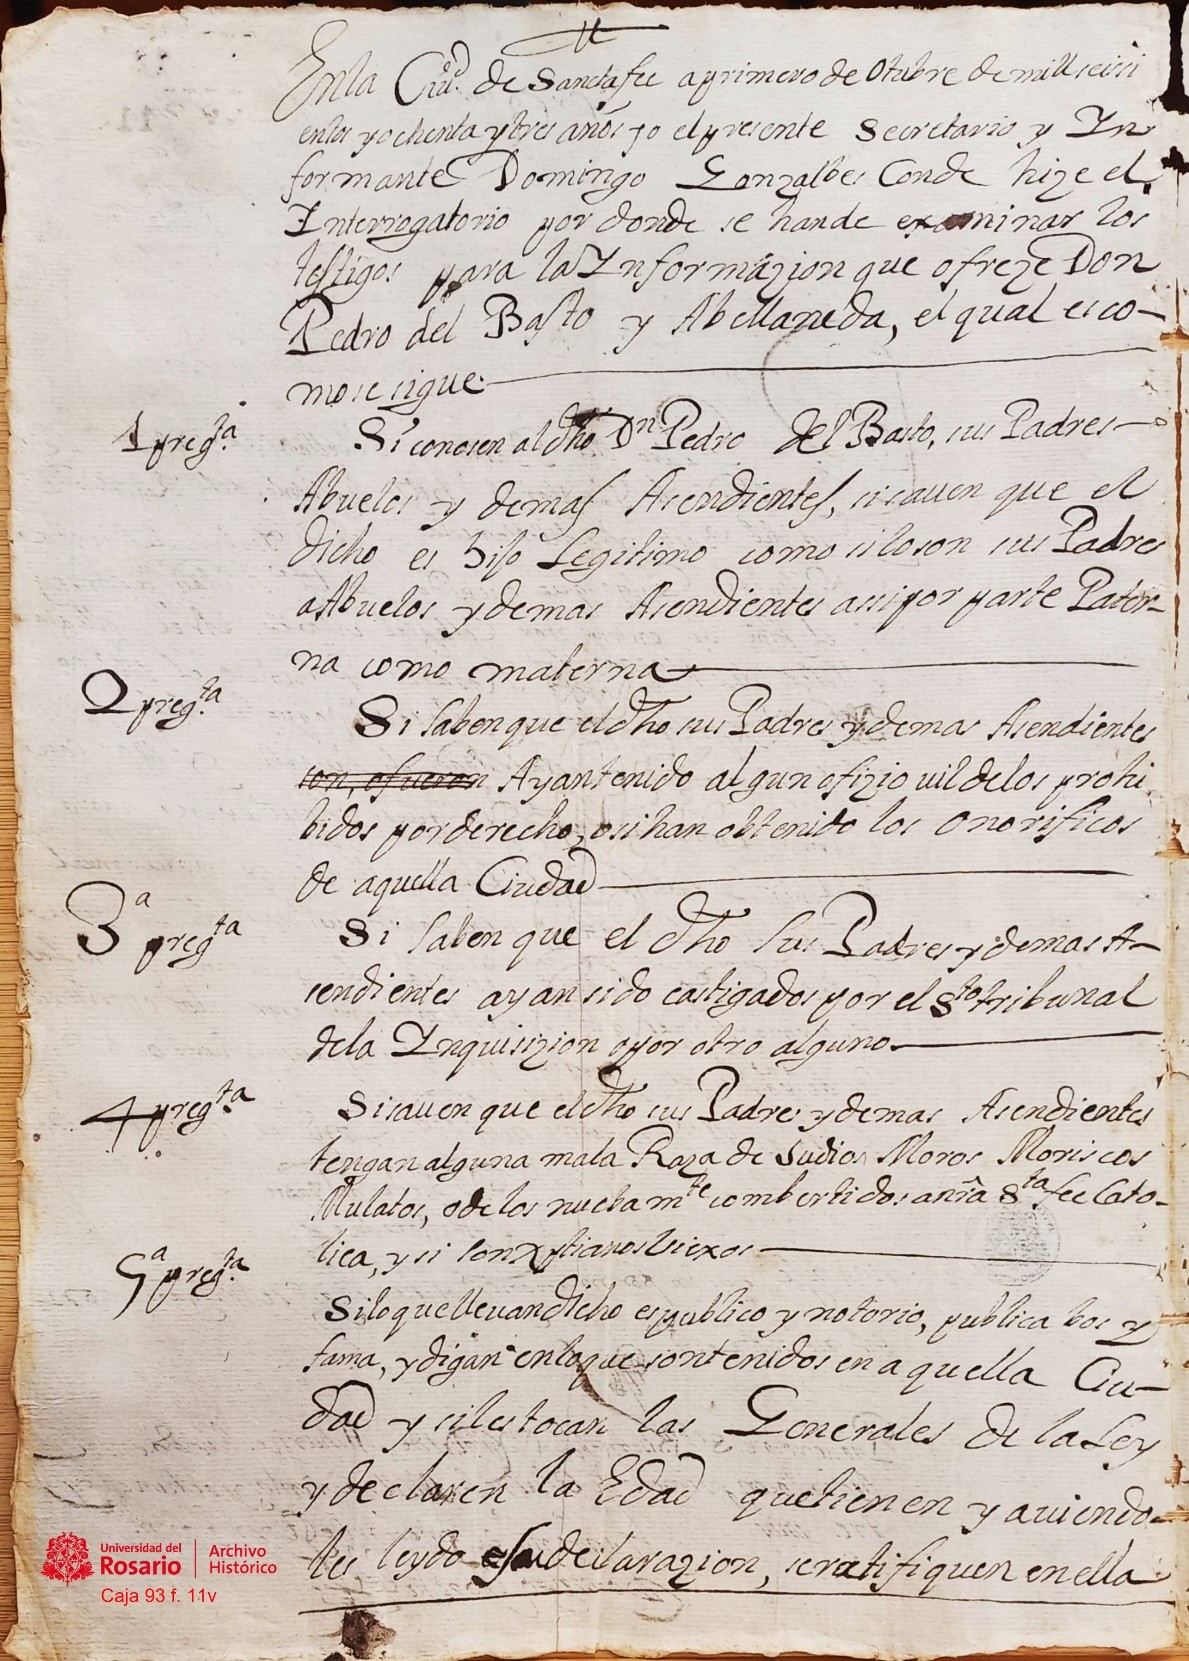 En la Ciud. de Sanctafee a primero de Otubre de mill seisci
entos y ochenta y tres años yo el presente Secretario y Yn
formante Domingo Gonzalbes Conde hize el
Interrogatorio por donde se hande examinar los
testigos para la Ynformazion que ofreze Don
Pedro del Basto y Abellaneda, el qual es co-
mo se sigue.
1 preg.ta
Si conosen al dho Dn Pedro del Basto, sus Padres
Abuelos y demas Asendientes, si sauen que el
dicho es hijo Legitimo como si lo son sus Padres
a Abuelos y demas Asendientes assi por parte Pater-
na como materna
2 preg.ta
Si saben que el dho sus Padres y demas Asendientes
son, o fueron Ayan tenido algun ofizio uil de los prohi
bidos por derecho, o si han obtenido los Onorificos
de aquella Ciudad
3a preg.ta
Si saben que el dho sus Padres y demas A-
sendientes ayan sido castigados por el Sto tribunal
de la Ynquisizion o por otro alguno
4 preg.ta
Si sauen que el dho sus Padres y demas Asendientes
tengan alguna mala Raza de Judios Moros Moriscos
Mulatos, o de los nueba mte combertidos a nra Sta fee Cato-
lica, y si son Xptianos Viexos
5a preg.ta
Si lo que lleuan dicho es publico y notorio, publica bos y
fama, y digan en lo que son tenidos en aquella Ciu-
dad y si les tocan las Generales de la Ley
y declaren la Edad que tienen y auiendo-
les leydo su declarazion, se ratifiquen en ella
Universidad del
Rosario
Archivo
Histórico
Caja 93 f. 11v